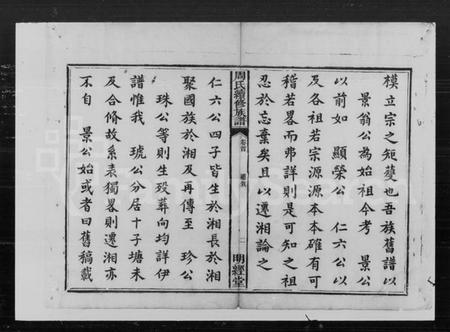 模立宗之矩矱也吾族舊譜以
景翁公為始祖今考　景公
以前如　顯榮公　仁六公以
及各祖若宗源源本本確有可
稽若畧而弗詳則是可知之祖
忍於忘棄矣且以遷湘論之
周氏續修族譜
卷首
二
明經堂
仁六公四子皆生於湘長於湘
聚國族於湘及再傳至　珍公
珠公等則生歿葬向均詳伊
譜惟我　琥公分居十子塘未
及合修故系表獨畧則遷湘亦
不自　景公始或者曰舊稿載